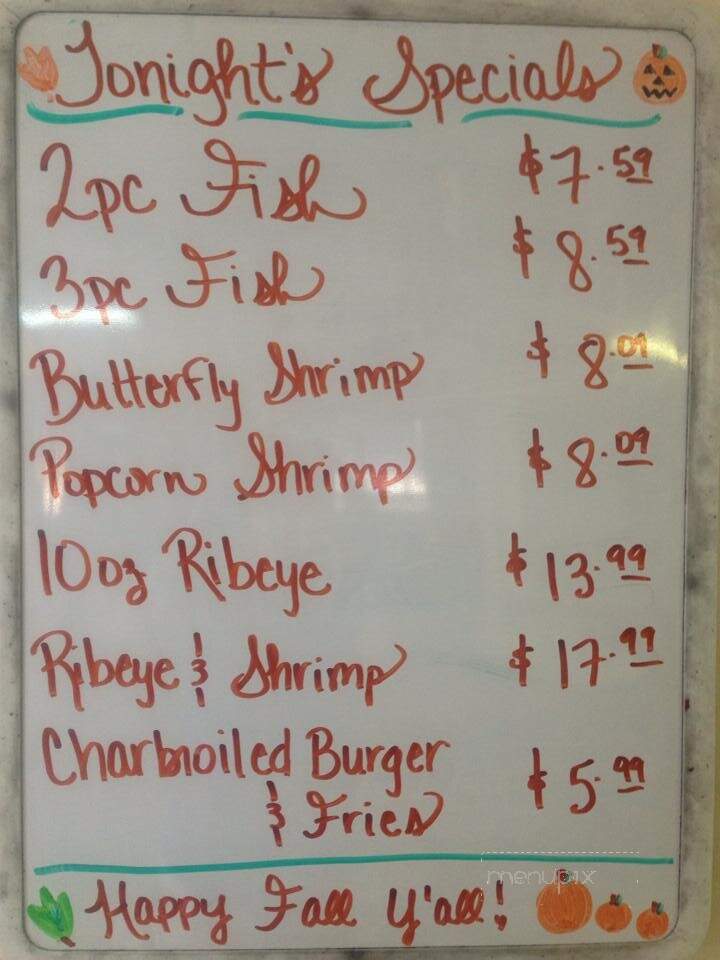 Tonight's Specials
2pc Fish $7.59
3pc Fish $8.59
Butterfly Shrimp $8.09
Popcorn Shrimp $8.09
10oz Ribeye $13.99
Ribeye & Shrimp $17.99
Charbroiled Burger
& Fries $5.99
menupix
Happy Fall Y'all!